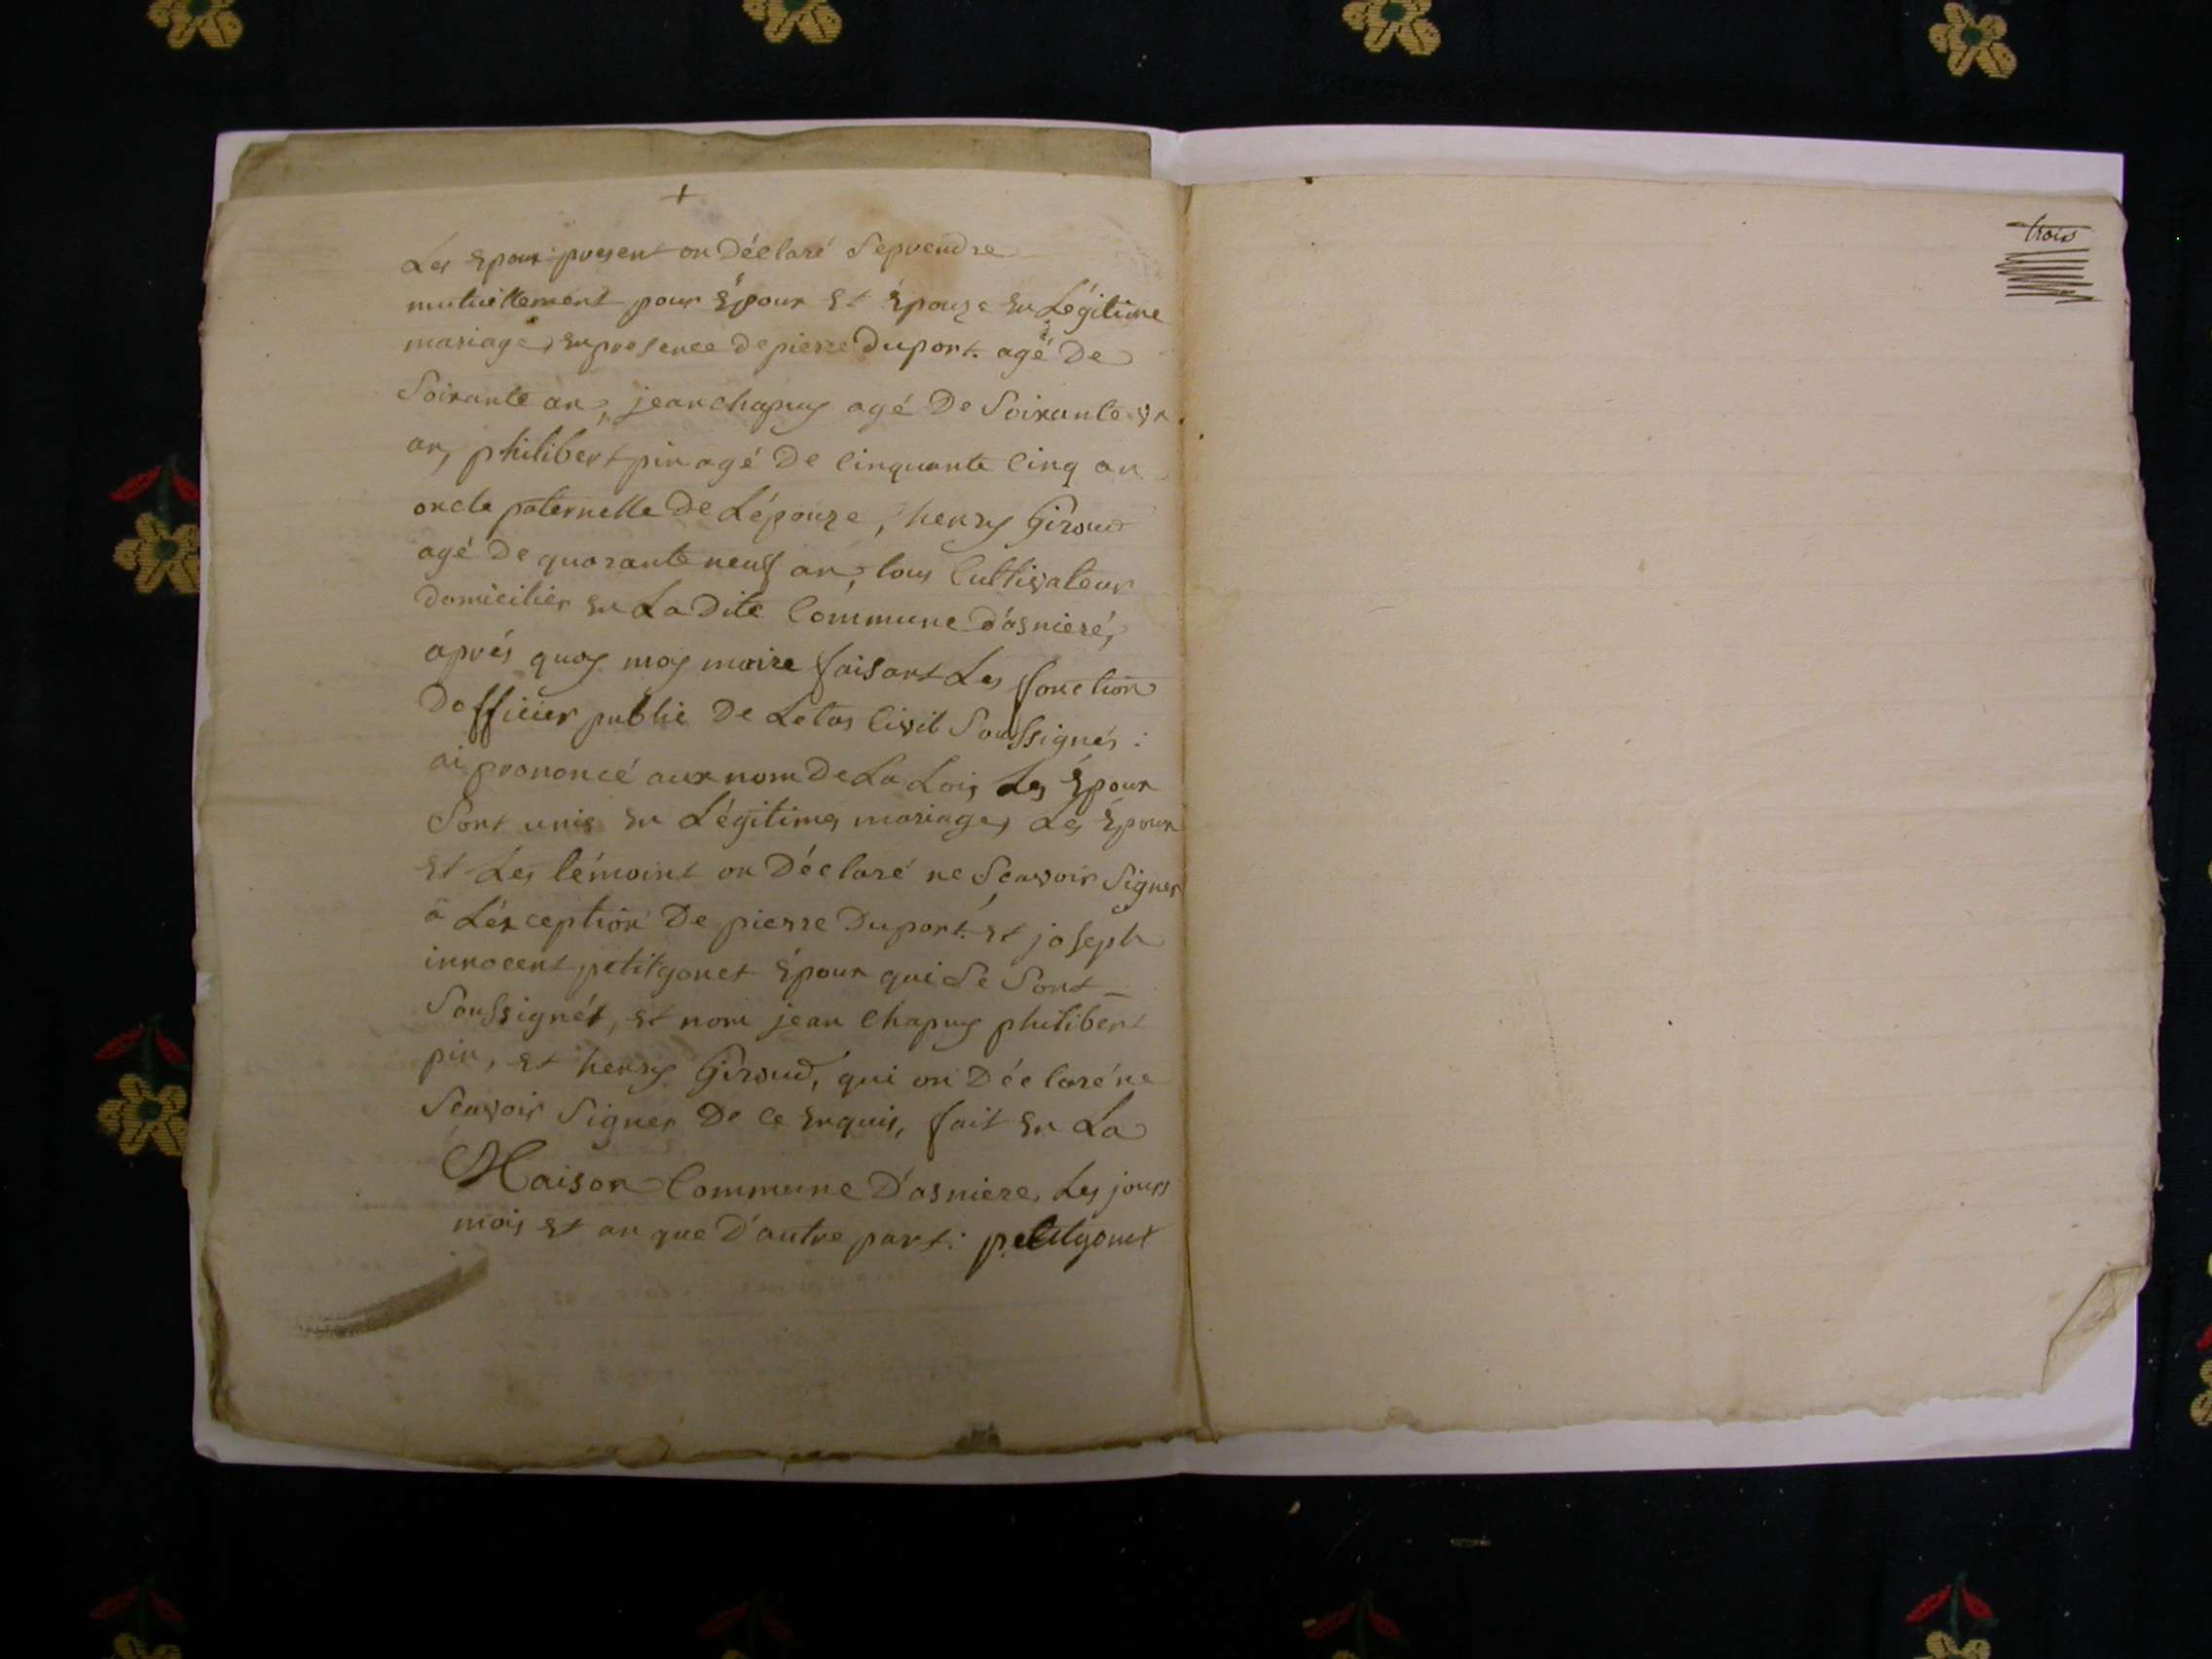 Les Epoux present on Déclaré Seprendre
mutuellement pour Épour Et Épouze En Légitime
mariage, Enpresence De pierre Duport agé De
Soixante an, jean chapuy agé De Soixante un
an, philibert pin agé De Cinquante Cinq an
oncle paternelle De Lépouze, henry Giroud
agé De quarante neuf an, tous Cultivateur
Domicilier En La Dite Commune D'asnieré,
aprés quoy moy maire faisant Les fonction
Dofficier public De Letas Civil Soussignés :
ai prononcé aux nom De La Loi, Les Épour
Sont unis En Légitimes mariages, Les Épour
Et Les témoint on Déclaré ne Scavoir Signer
a Léxception De pierre Duport Et joseph
innocent petitgonet Épour qui Se Sont
Soussignés, Et non jean Chapuy philibert
pin, Et henry Giroud, qui on Déclaré ne
Scavoir Signer De Ce Enquis, fait En La
Maison Commune D'asniere, Les jours
mois Et an que D'autre part : petitgonet
trois